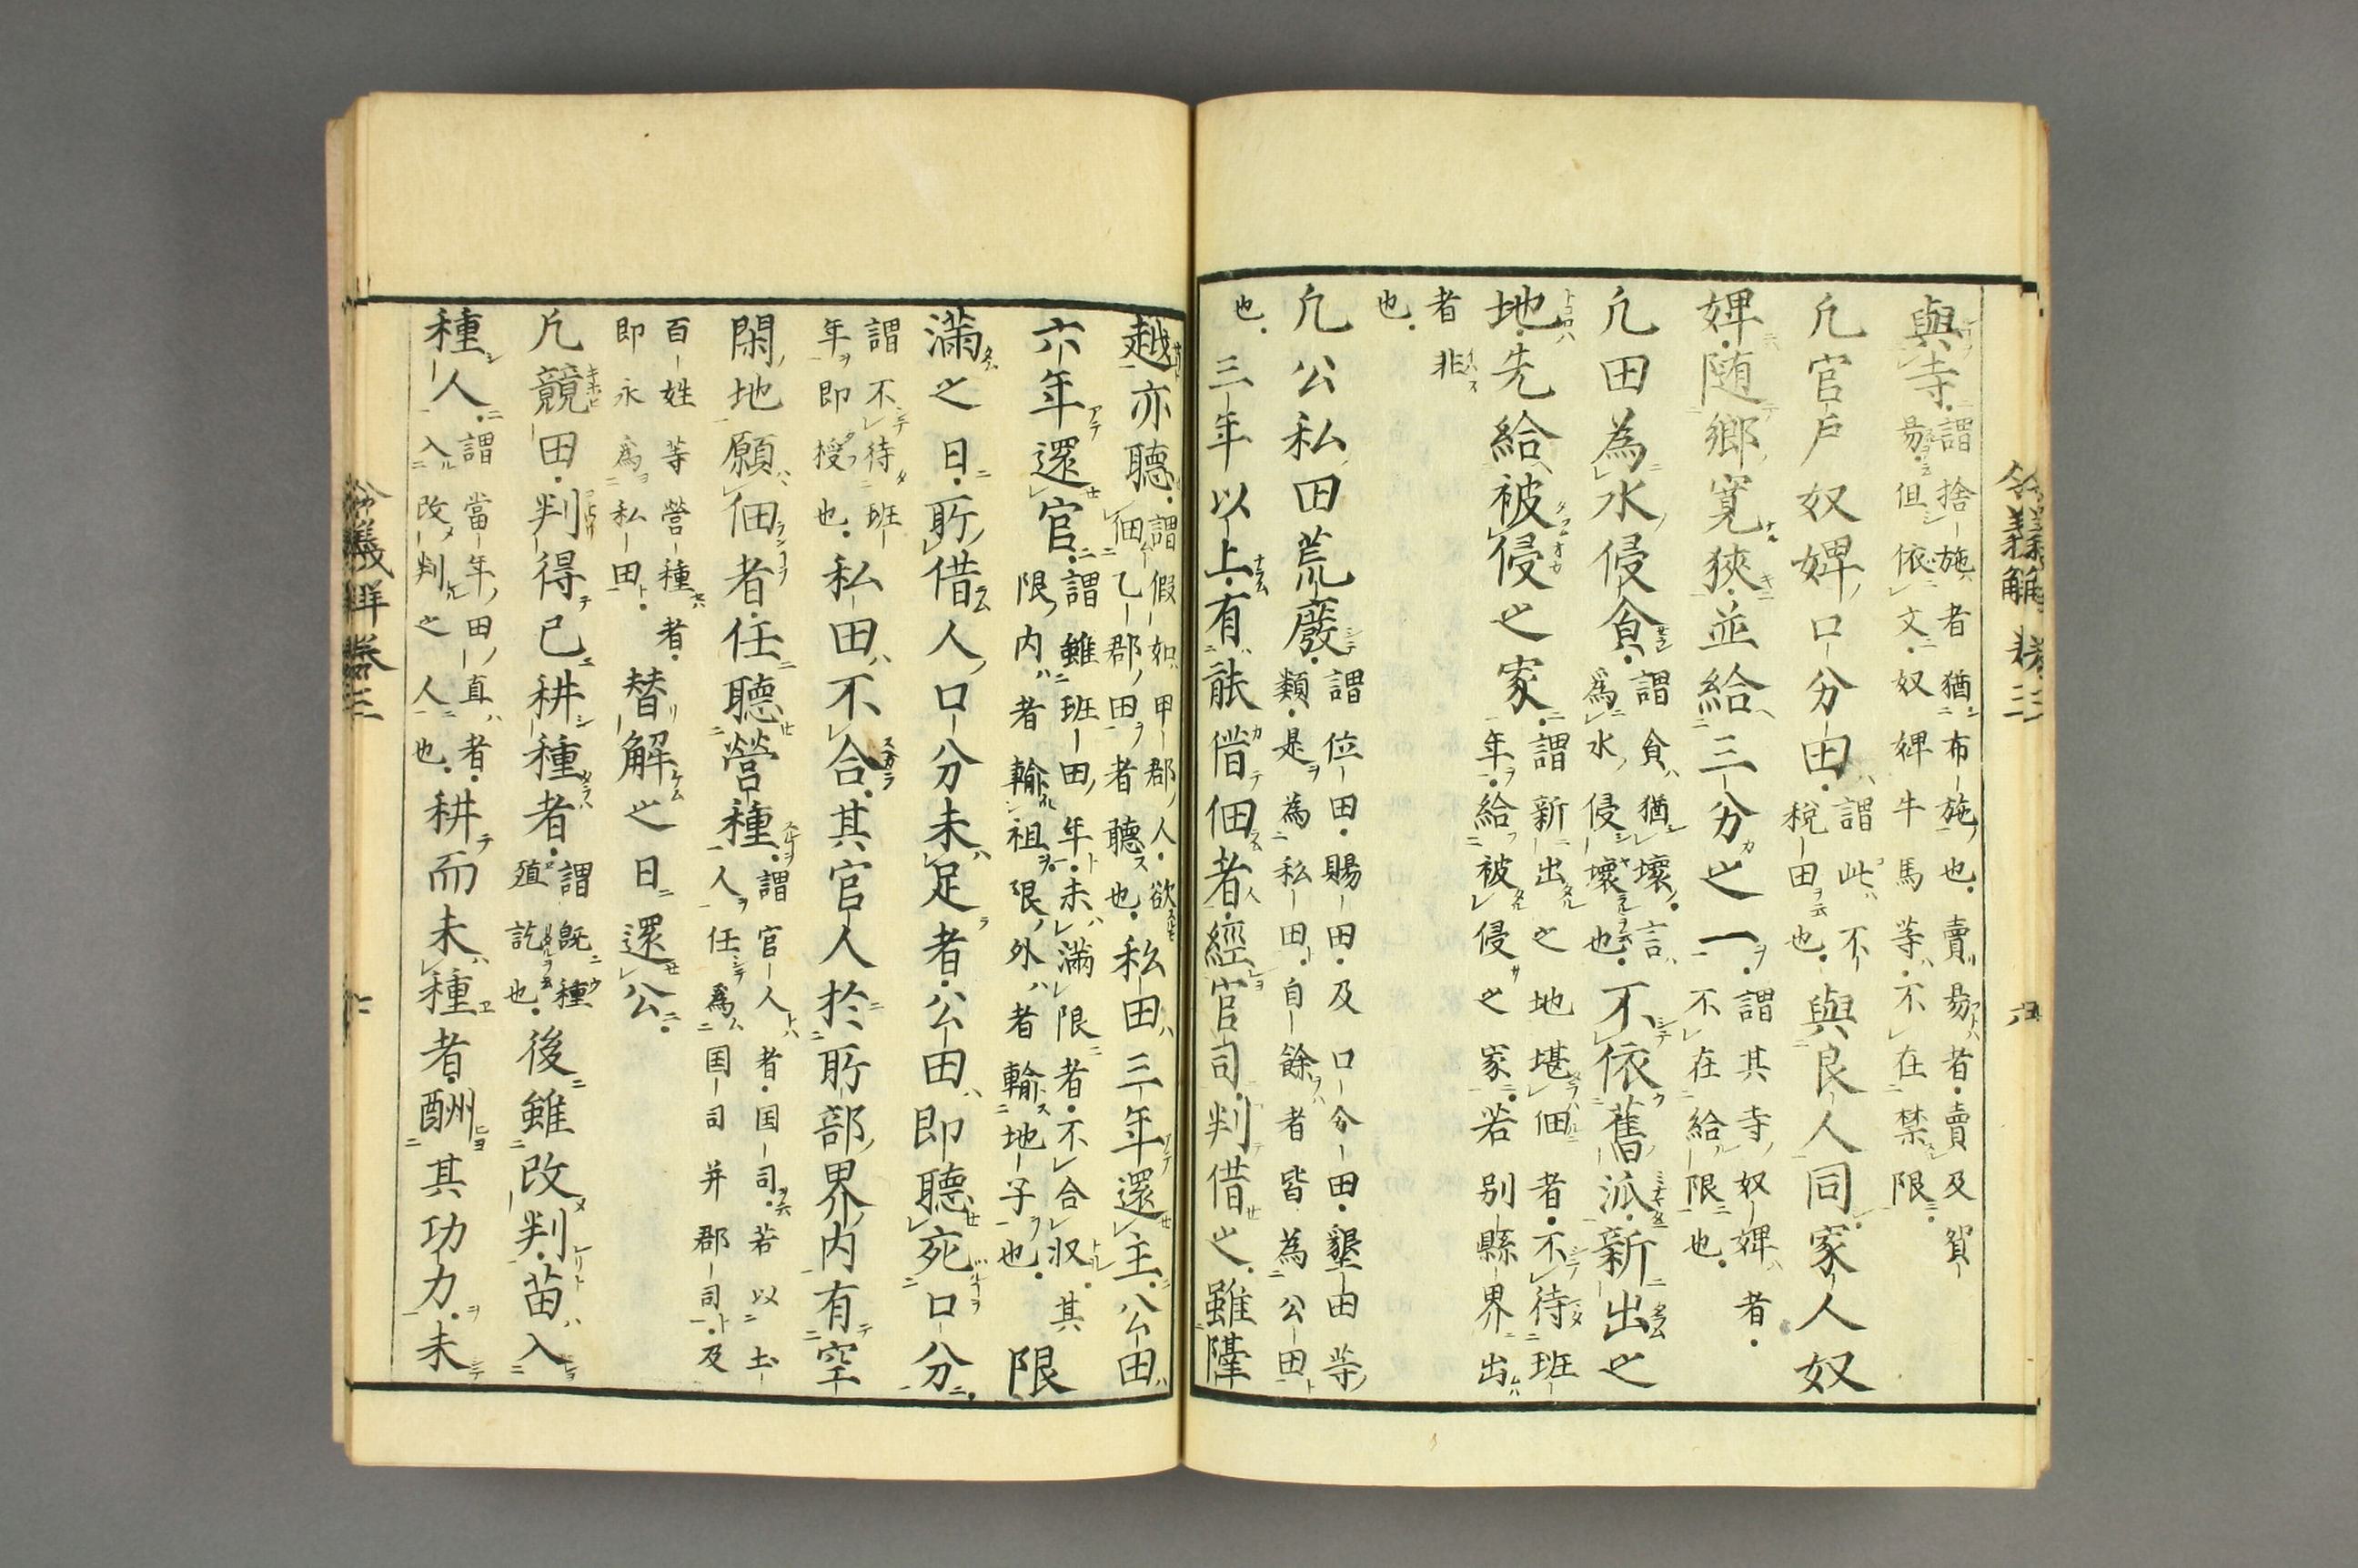 令義解 卷三
與寺謂捨施者猶布施也賣易者賣及貿
易但依文奴婢牛馬等不在禁限
凢官戸奴婢口分田謂此不
税田也與良人同家人奴
婢随郷寛狹並給三分之一謂其寺奴婢者
不在給限也
凢田為水侵食謂食猶壞言
爲水侵壞也不依舊泒新出之
地先給被侵之家謂新出之地堪佃者不待班
年給被侵之家若別縣界出
者非
也
凢公私田荒廢謂位田賜田及口分田墾田等
類是為私田自餘者皆為公田
也三年以上有能借佃者經官司判借之雖隔
越亦聴謂假如甲郡人欲
佃乙郡田者聴也私田三年還主公田
六年還官謂雖班田年未満限者不合収其
限内者輸租限外者輸地子也限
満之日所借人口分未足者公田即聴死口分
謂不待班
年即授也私田不合其官人於所部界内有空
閑地願佃者任聴營種謂官人者国司若以土
人任爲国司并郡司及
百姓等營種者
即永爲私田替解之日還公
凢競田判得已耕種者謂既種
殖訖也後雖改判苗入
種人謂當年田直者
入改判之人也耕而未種者酬其功力未
令義解卷三